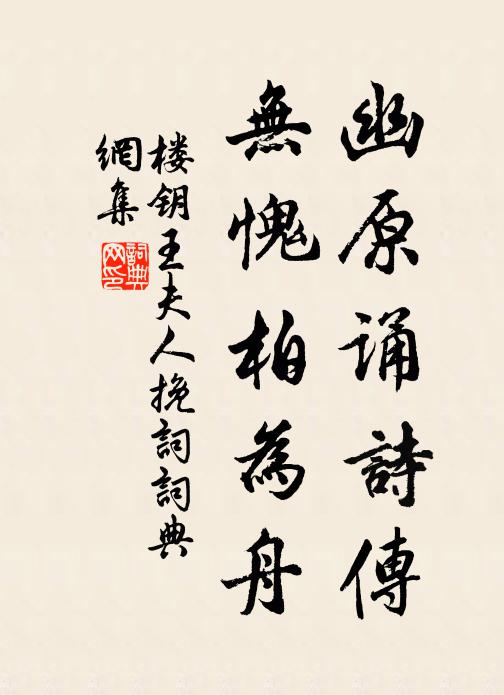 幽原诵詩傳
無愧柏為舟
楼钥王夫人挽詞詞典
網集
詞典網印